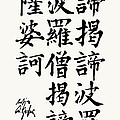 諦揭諦波羅
波羅僧揭諦
薩婆訶